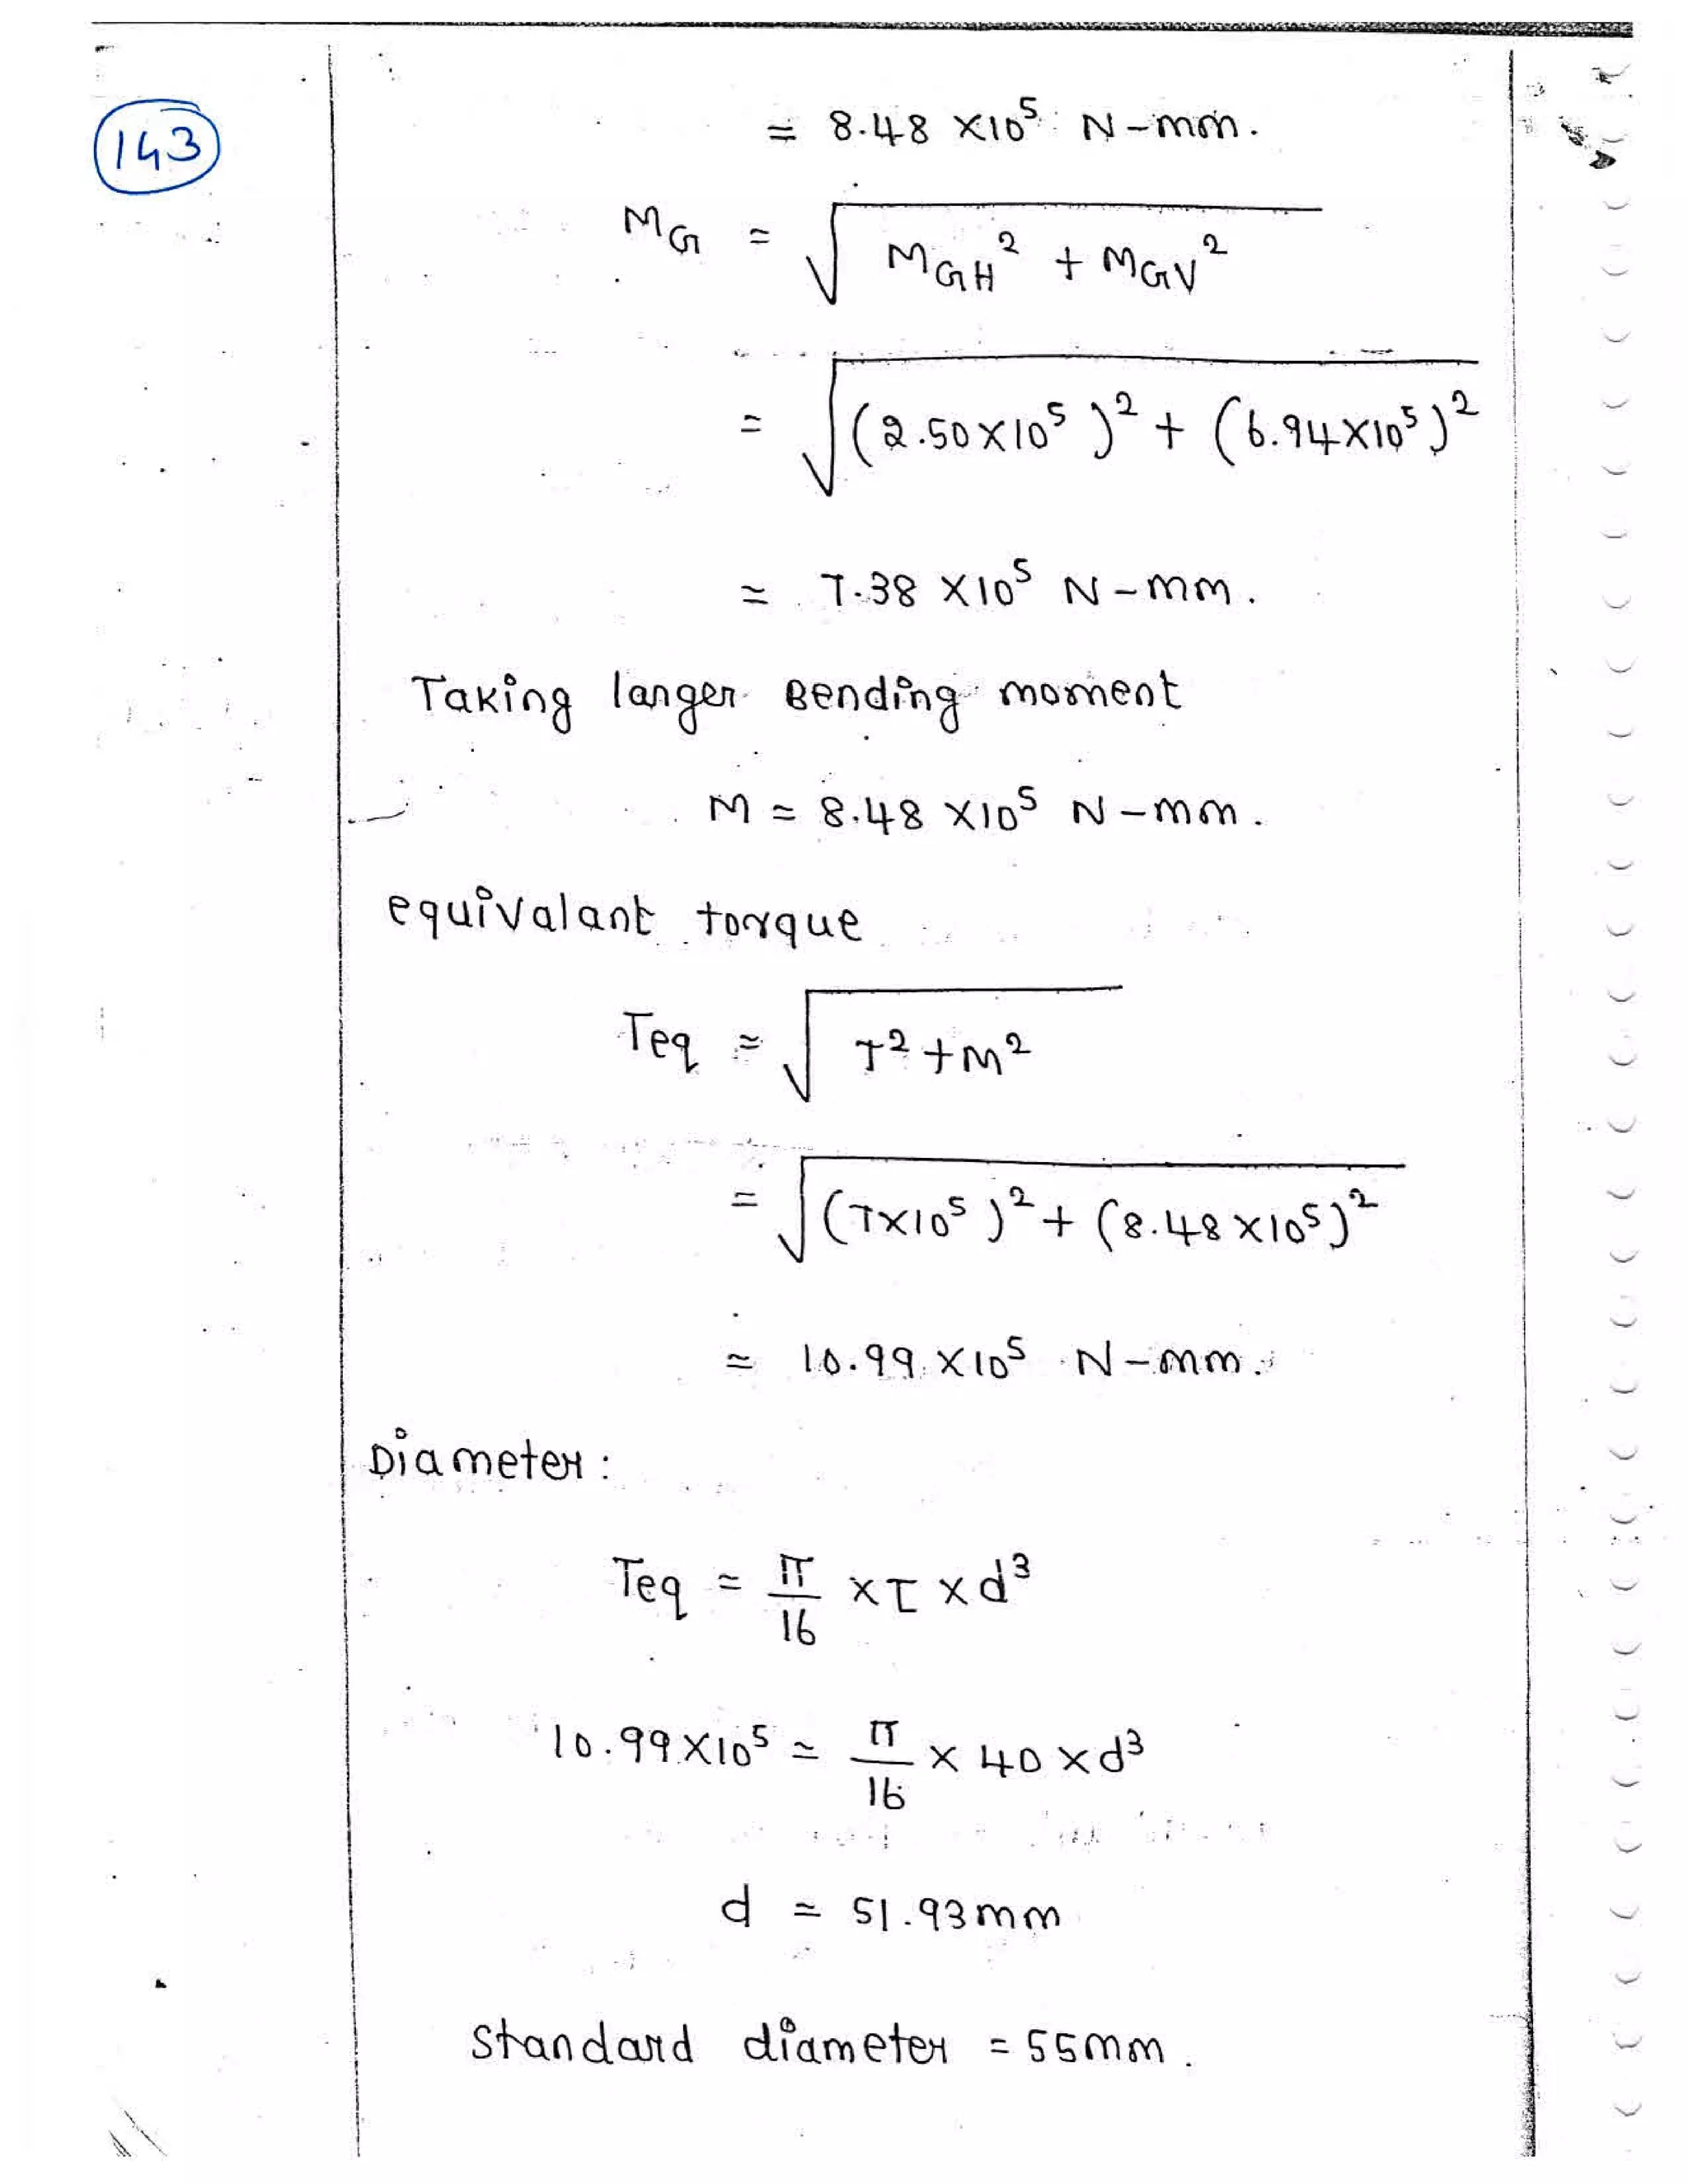 143
= 8.48 ×10⁵ N-mm.
MG = √(MGH² + MGV²)
= √((2.50×10⁵)² + (6.94×10⁵)²)
= 7.38 ×10⁵ N-mm.
Taking larger Bending moment
M = 8.48 ×10⁵ N-mm.
equivalant torque
Teq = √(T²+M²)
= √((7×10⁵)² + (8.48×10⁵)²)
= 10.99 ×10⁵ N-mm.
Diameter:
Teq = π/16 × τ × d³
10.99×10⁵ = π/16 × 40 × d³
d = 51.93mm
standard diameter = 55mm.